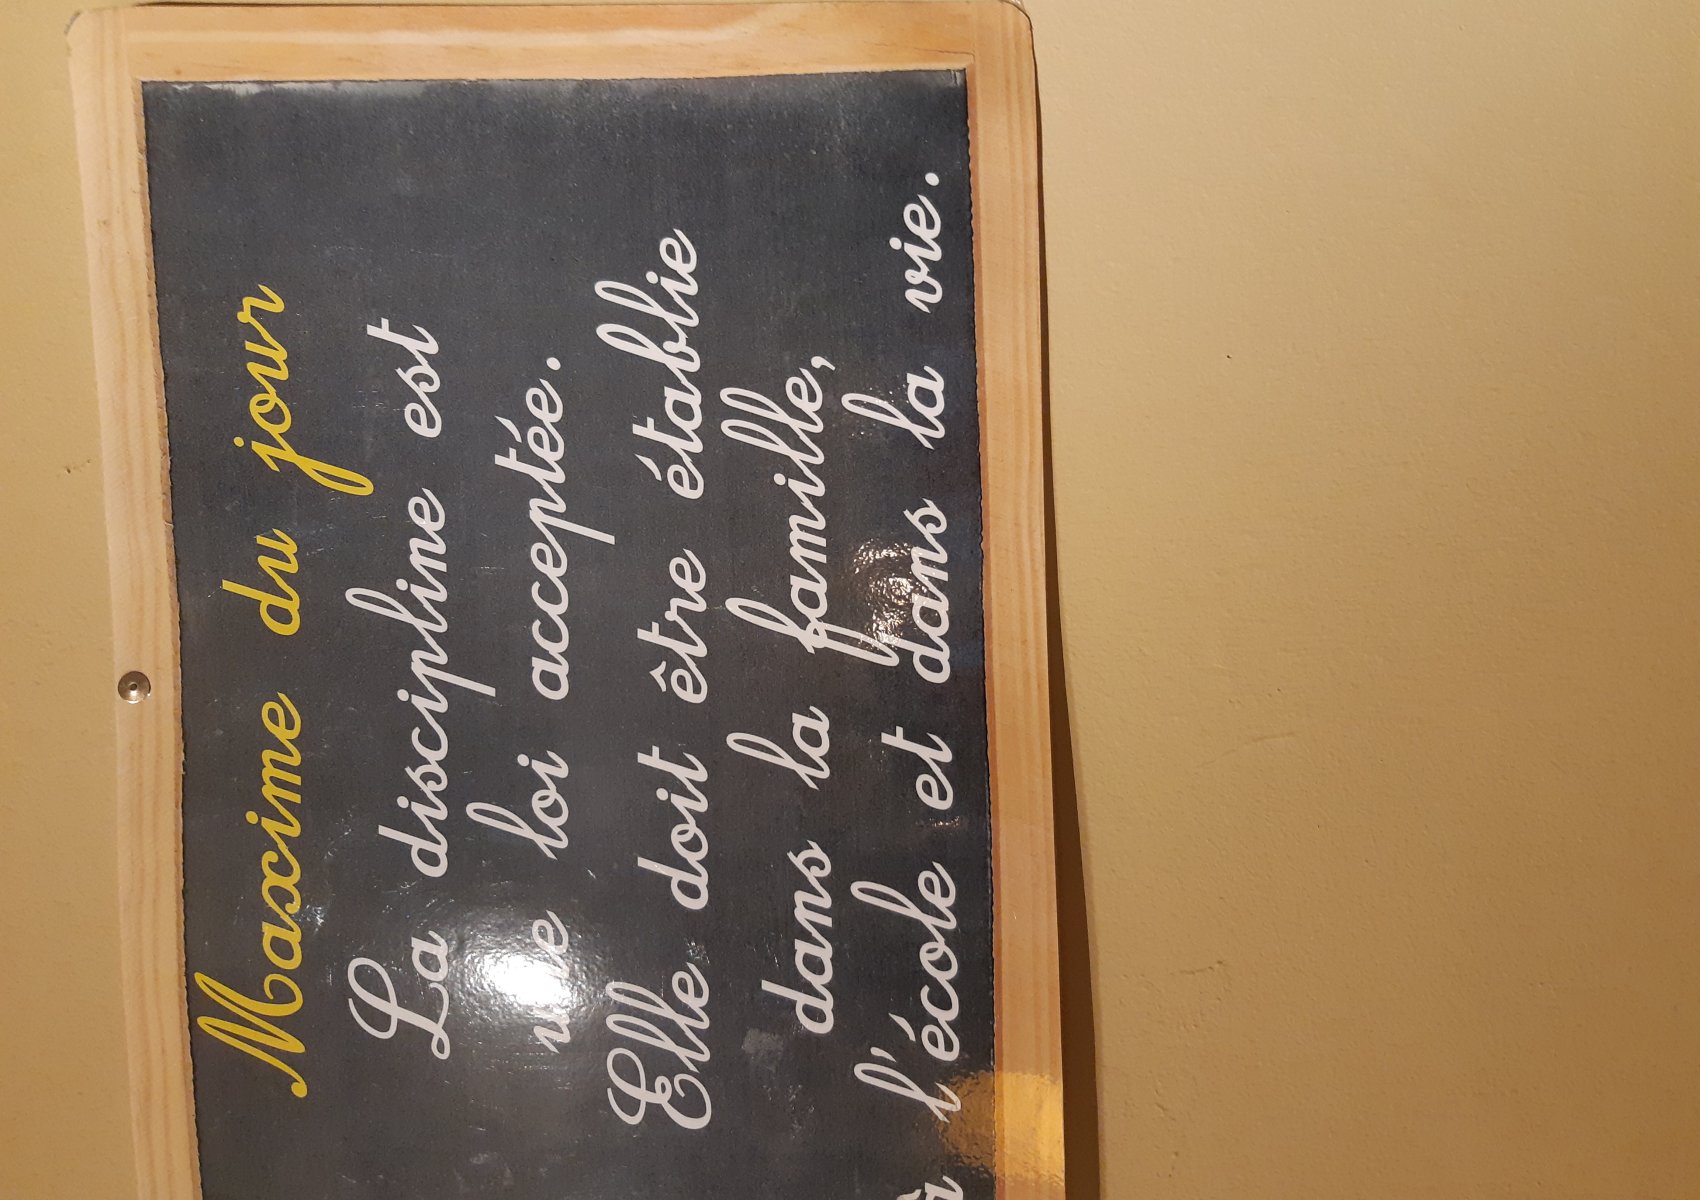 Maxime du jour
La discipline est
une loi acceptée.
Elle doit être établie
dans la famille,
à l'école et dans la vie.